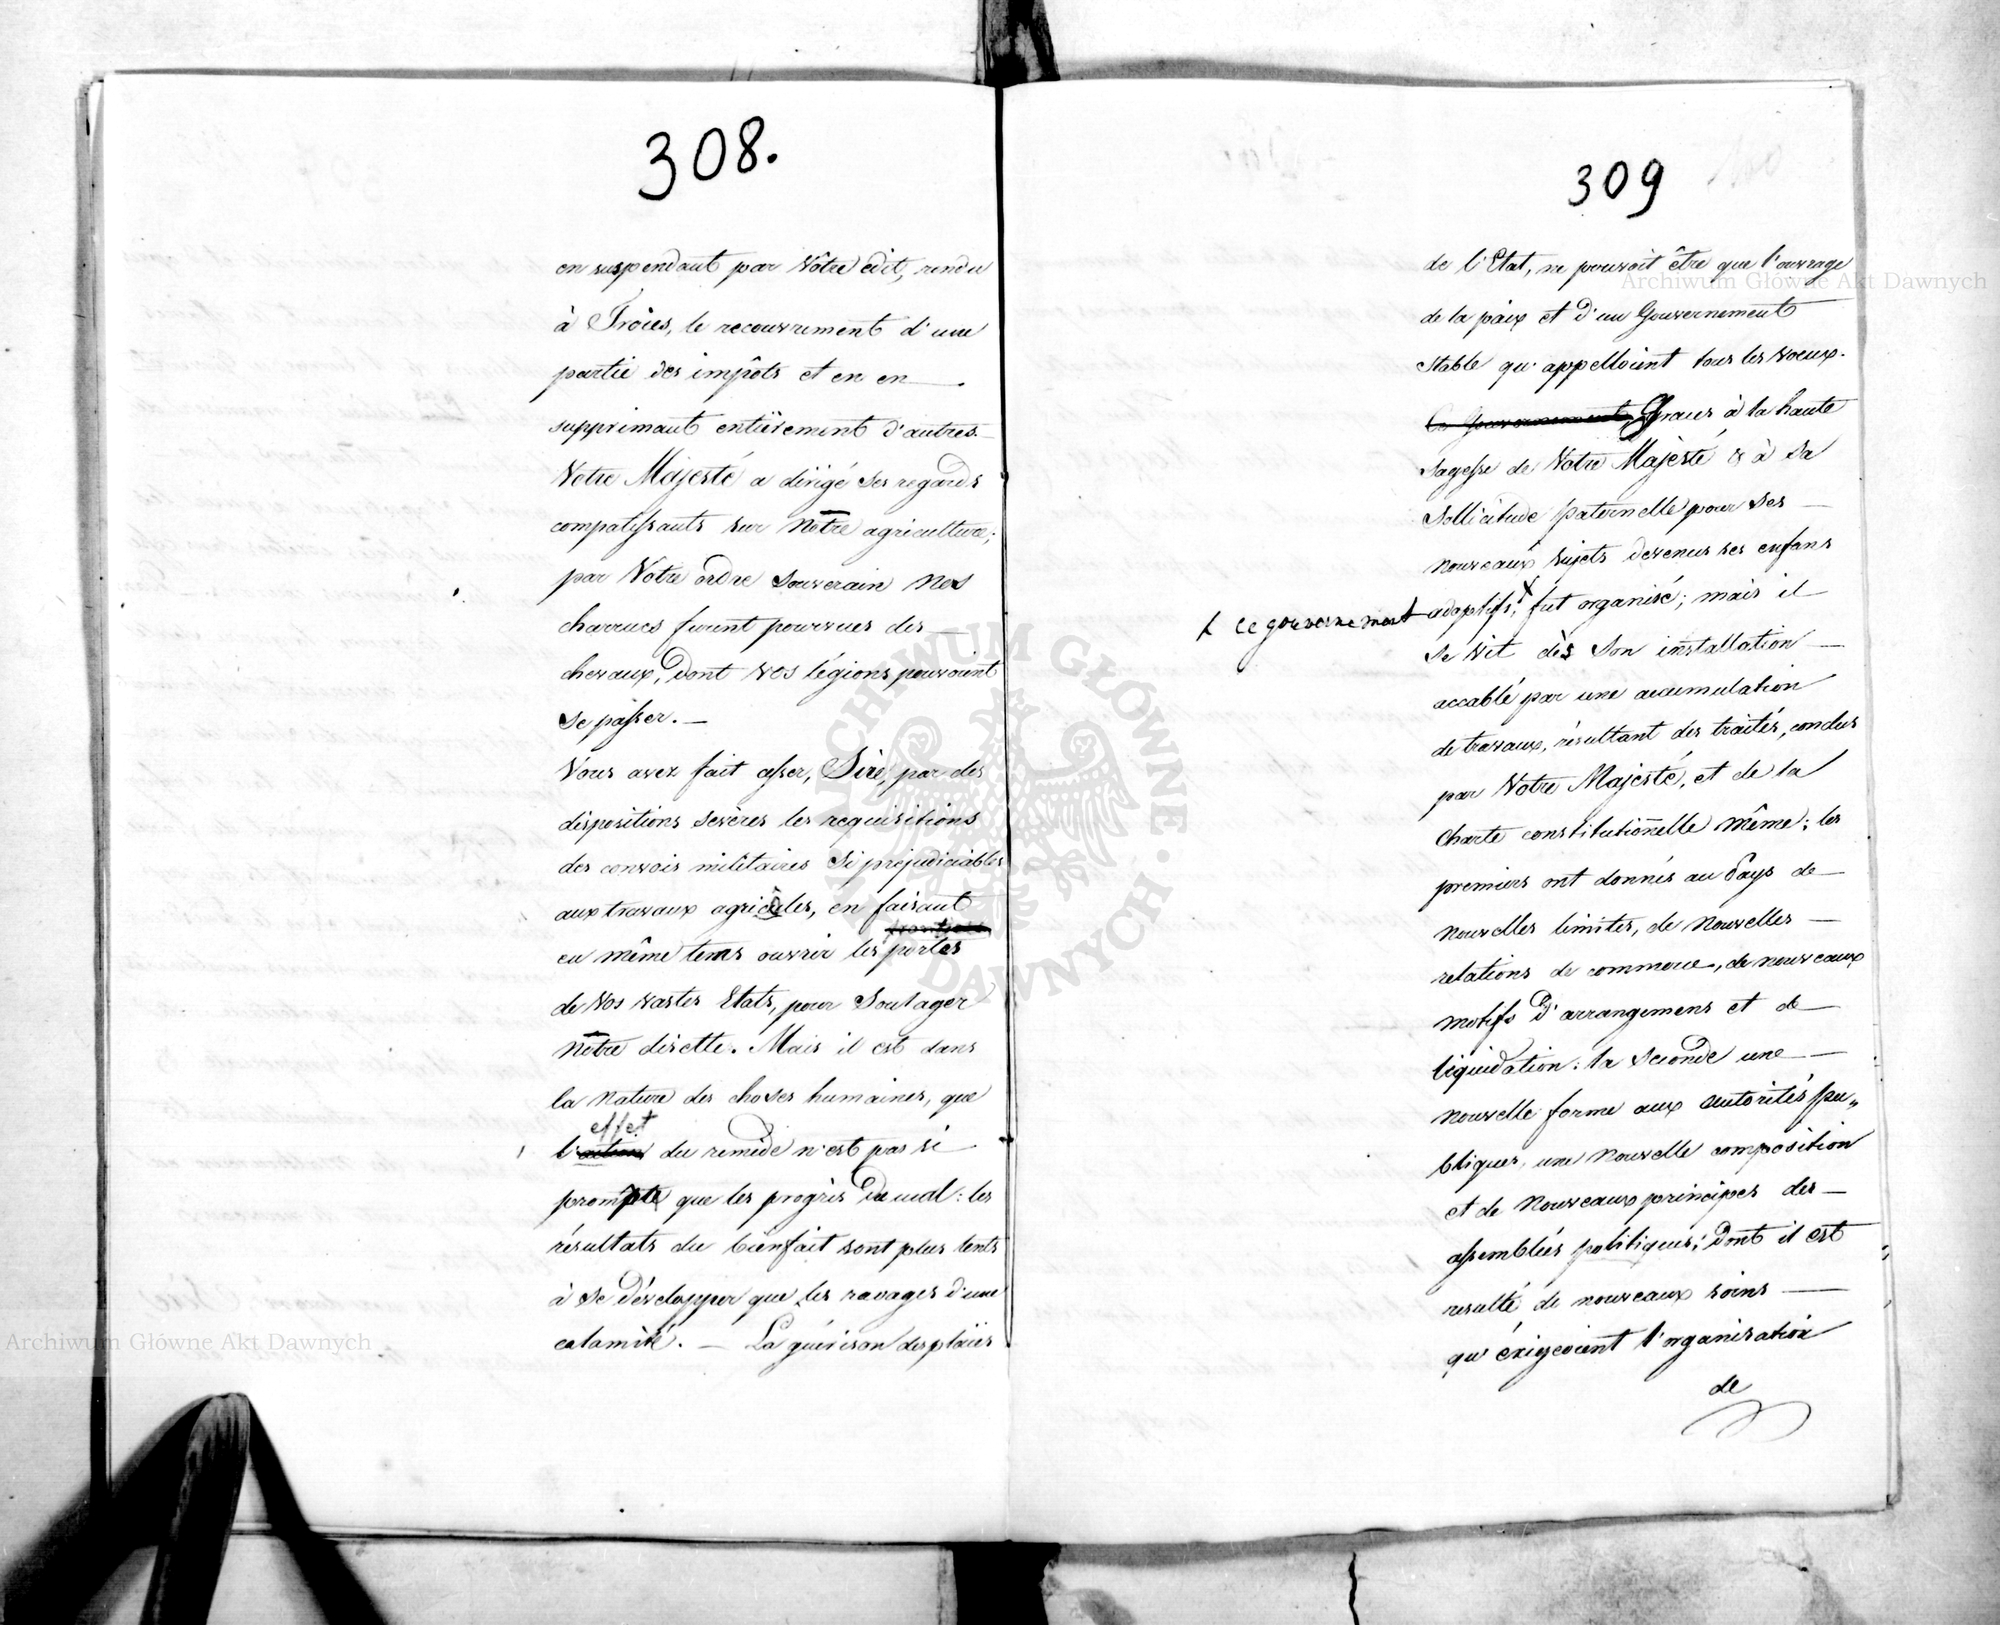 308.
en suspendant par Vôtre édit, rendu
à Troïes, le recouvrement d'une
partie des impôts et en en —
supprimant entiérement d'autres.
Votre Majesté a dirigé ses regards
compatissants sur Nôtre agriculture;
par Votre ordre souverain nos
charrues furent pourvues des —
chevaux, dont vos légions pouvoient
se passer. —
Vous avez fait cesser, Sire, par des
dispositions sevères les requisitions
des convois militaires si préjudiciables
aux travaux agricoles, en faisant
frontières
en même tems ouvrir les portes
de Vos vastes Etats, pour soulager
Nôtre disette. Mais il est dans
la nature des choses humaines, que
effet
l'action du remède n'est pas si —
prompte que les progrès du mal: les
résultats du bienfait sont plus lents
à se développer que les ravages d'une
calamité. — La guérison des plaïes
309
de l'Etat, ne pouvoit être que l'ouvrage
de la paix et d'un Gouvernement
stable qu'appelloient tous les voeux.
Ce Gouvernement, Graces à la haute
sagesse de Votre Majesté & à sa
sollicitude paternelle pour ses —
nouveaux sujets devenus ses enfans
adoptifs, fut organisé; mais il
ce gouvernement
se vit dès son installation —
accablé par une accumulation
de travaux, résultant des traités, conclus
par Votre Majesté, et de la
Charte constitutionelle même; les
premiers ont donnés au Pays de —
nouvelles limites, de nouvelles —
relations de commerce, de nouveaux
motifs d'arrangemens et de —
liquidation: la seconde une —
nouvelle forme aux autorités pu„
bliques, une nouvelle composition
et de nouveaux principes des —
assemblées politiques; dont il est
resulté de nouveaux soins —
qu'éxigeoient l'organisation
de
Archiwum Główne Akt Dawnych
Archiwum Główne Akt Dawnych
ARCHIWUM GŁÓWNE · AKT DAWNYCH ·